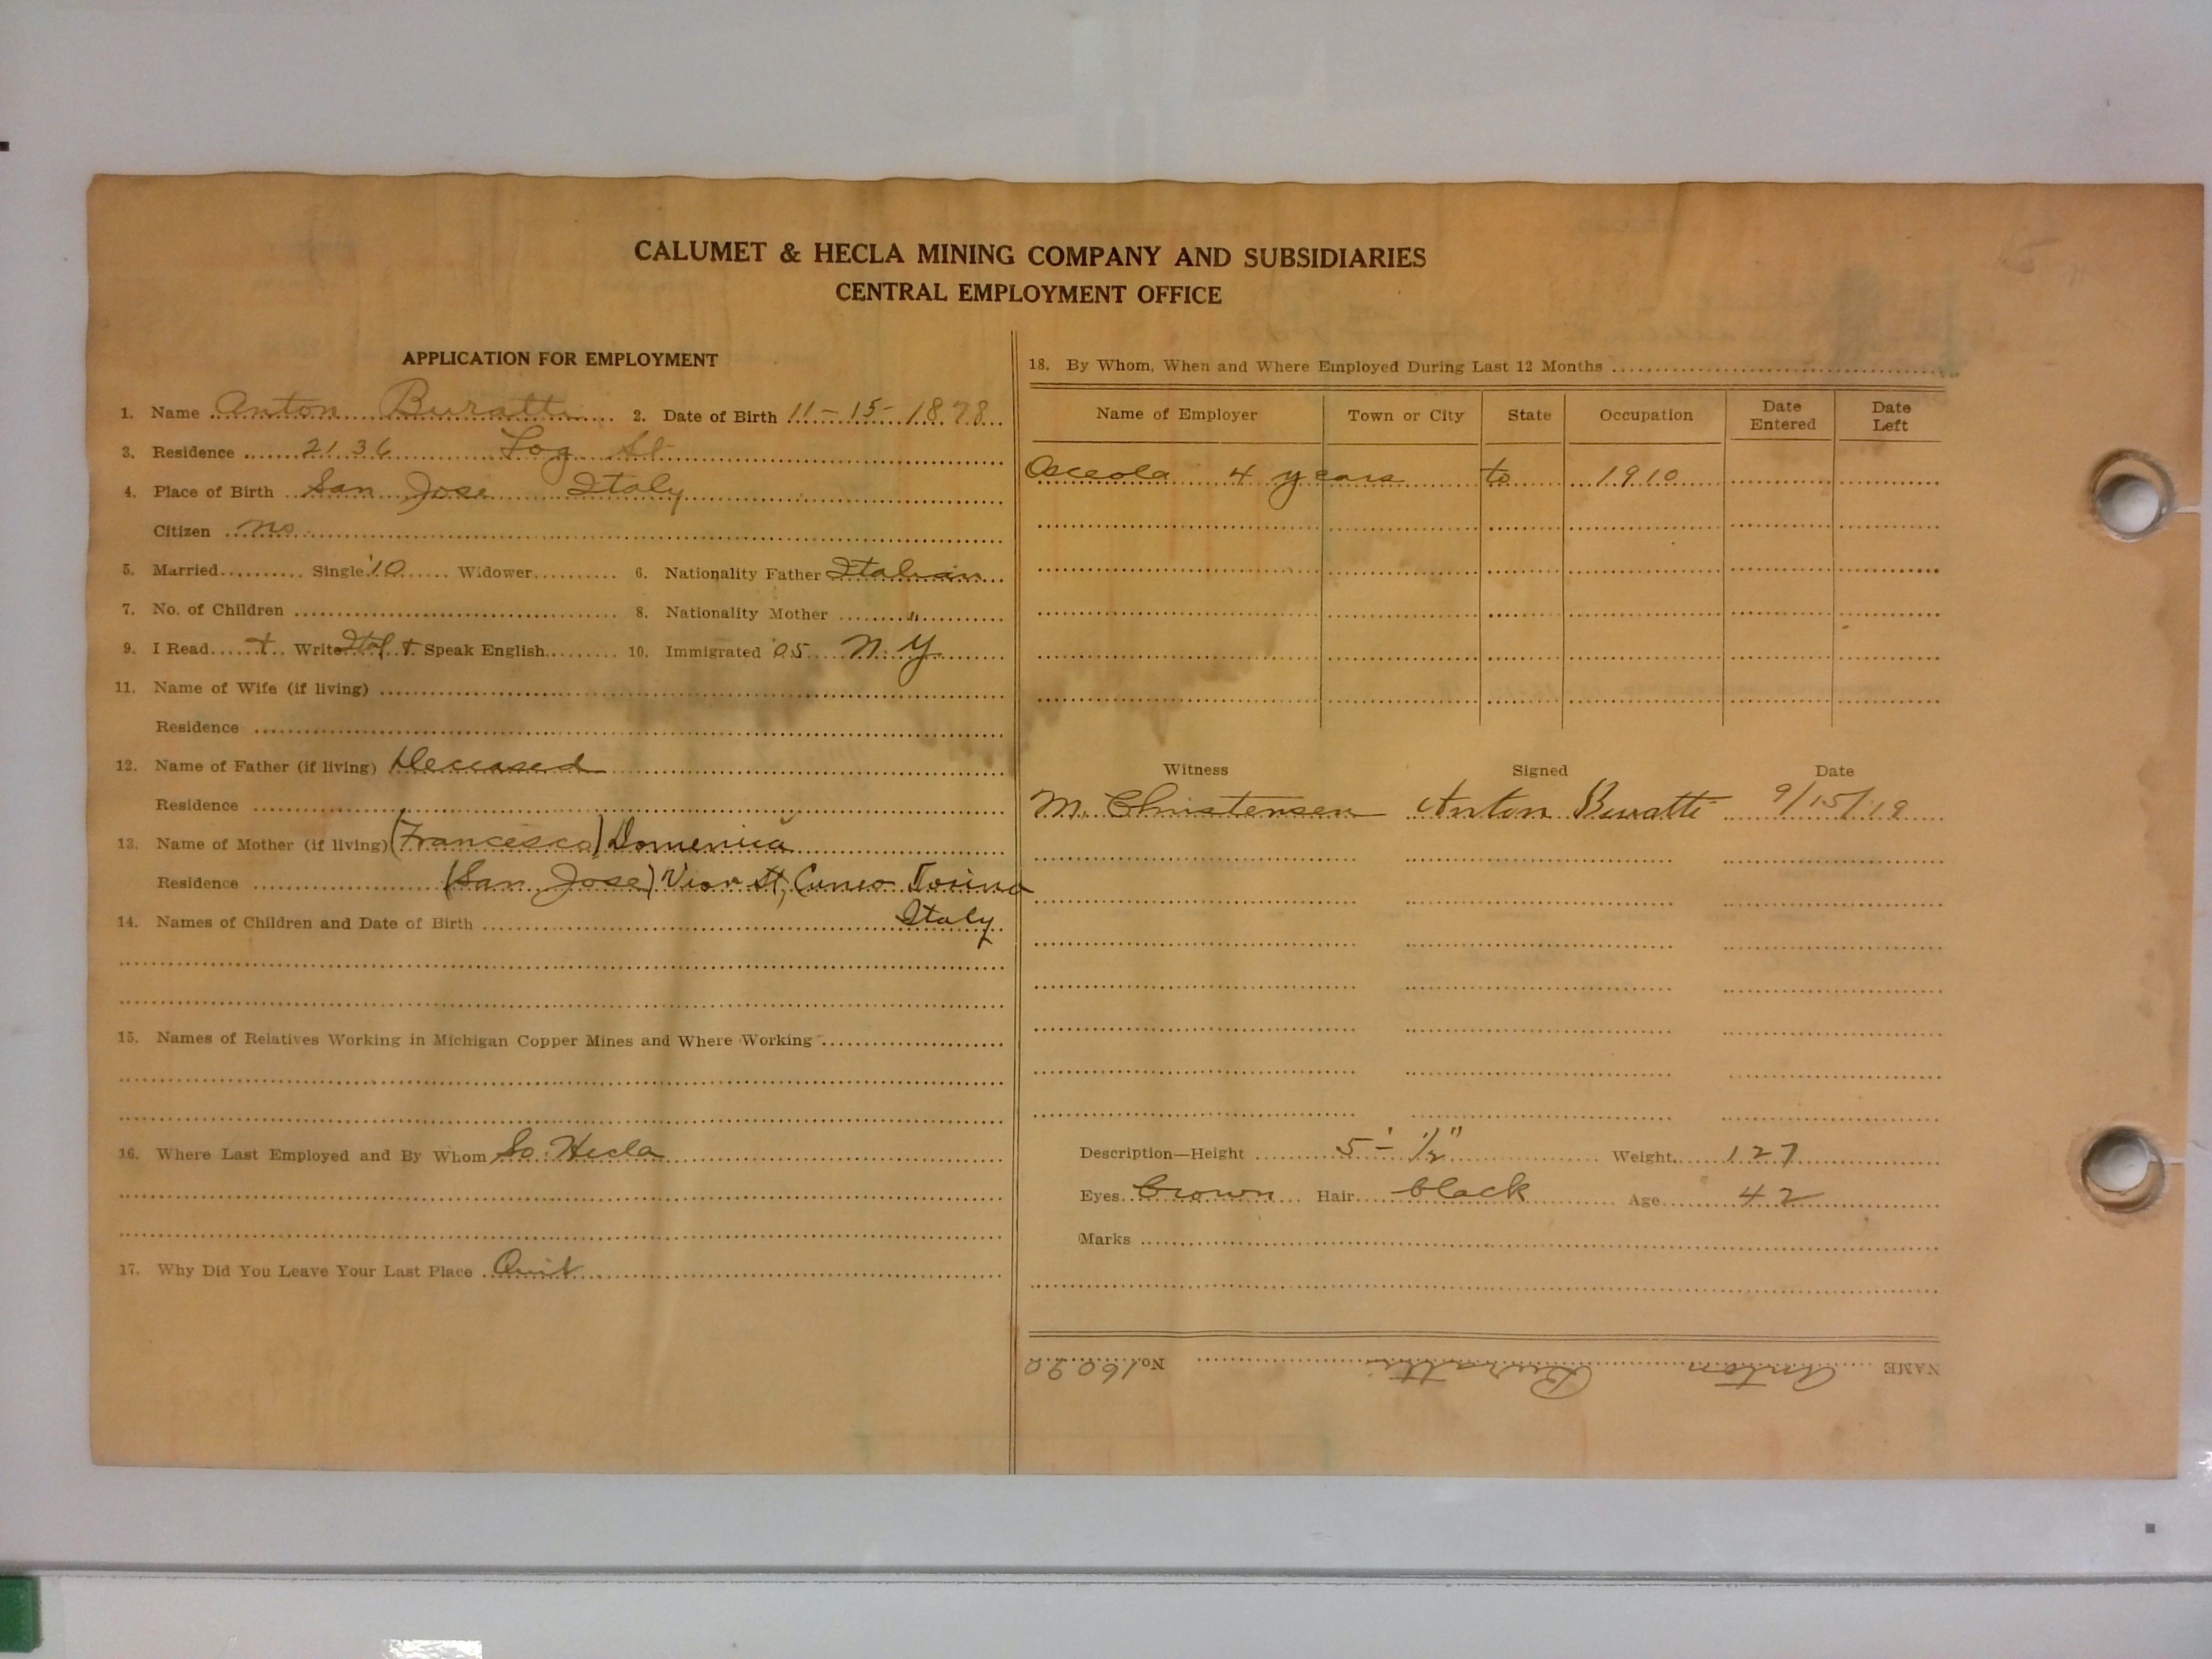 CALUMET & HECLA MINING COMPANY AND SUBSIDIARIES
CENTRAL EMPLOYMENT OFFICE
APPLICATION FOR EMPLOYMENT
1. Name Anton Buratti 2. Date of Birth 11-15-1878
3. Residence 2136 Log St
4. Place of Birth San Jose Italy
Citizen no
5. Married Single '10 Widower 6. Nationality Father Italian
7. No. of Children 8. Nationality Mother "
9. I Read + Write Ital + Speak English 10. Immigrated '05 N.Y
11. Name of Wife (if living)
Residence
12. Name of Father (if living) Deceased
Residence
13. Name of Mother (if living) (Francesca) Domenica
Residence (San Jose) St, Cuneo Torino
Italy
14. Names of Children and Date of Birth
15. Names of Relatives Working in Michigan Copper Mines and Where Working
16. Where Last Employed and By Whom So. Hecla
17. Why Did You Leave Your Last Place Quit
18. By Whom, When and Where Employed During Last 12 Months
Name of Employer Town or City State Occupation Date Entered Date Left
Osceola 4 years to 1910
Witness Signed Date
M. Christensen Anton Buratti 9/15/19
Description—Height 5'-½" Weight 127
Eyes brown Hair black Age 42
Marks
NAME Anton Buratti No. 16020